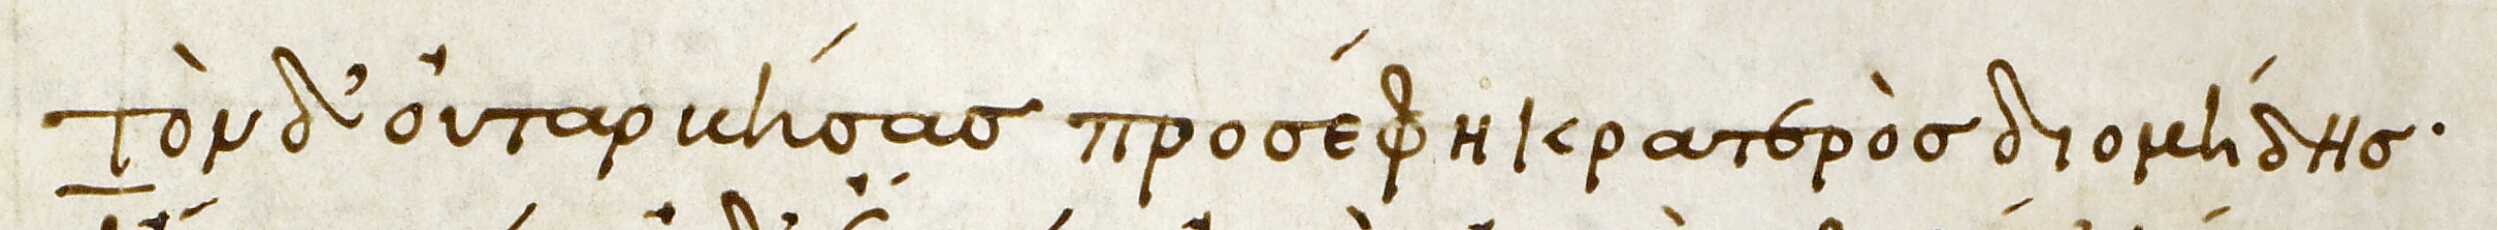 τὸν δ' οὐ ταρβήσας προσέφη κρατερὸς διομήδης·